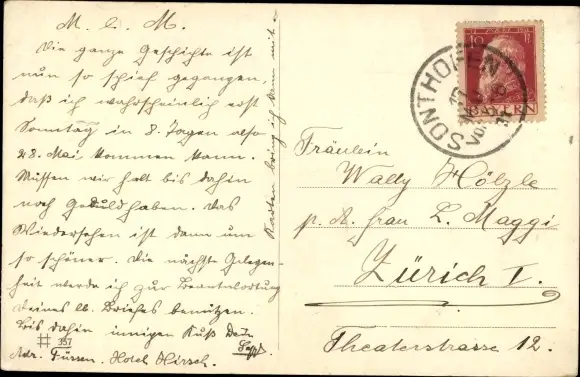 M. l. M.
Die ganze Geschichte ist
nun so schief gegangen,
daß ich wahrscheinlich erst
Sonntag in 8. Tagen also
28. Mai kommen kann.
Müssen wir halt bis dahin
noch Geduld haben. Das
Wiedersehen ist dann um
so schöner. Die nächste Gelegen-
heit werde ich zur Beantwortung
Deines lb. Briefes benutzen.
Bis dahin innigen Kuß Dein
Sepp.
# 357
Adr. Füssen. Hotel Hirsch.
Karten bring ich dann mit.
10 PF
BAYERN
SONTHOFEN
Fräulein
Wally Hölzle
p. A. Frau L. Maggi
Zürich I.
Theaterstrasse 12.